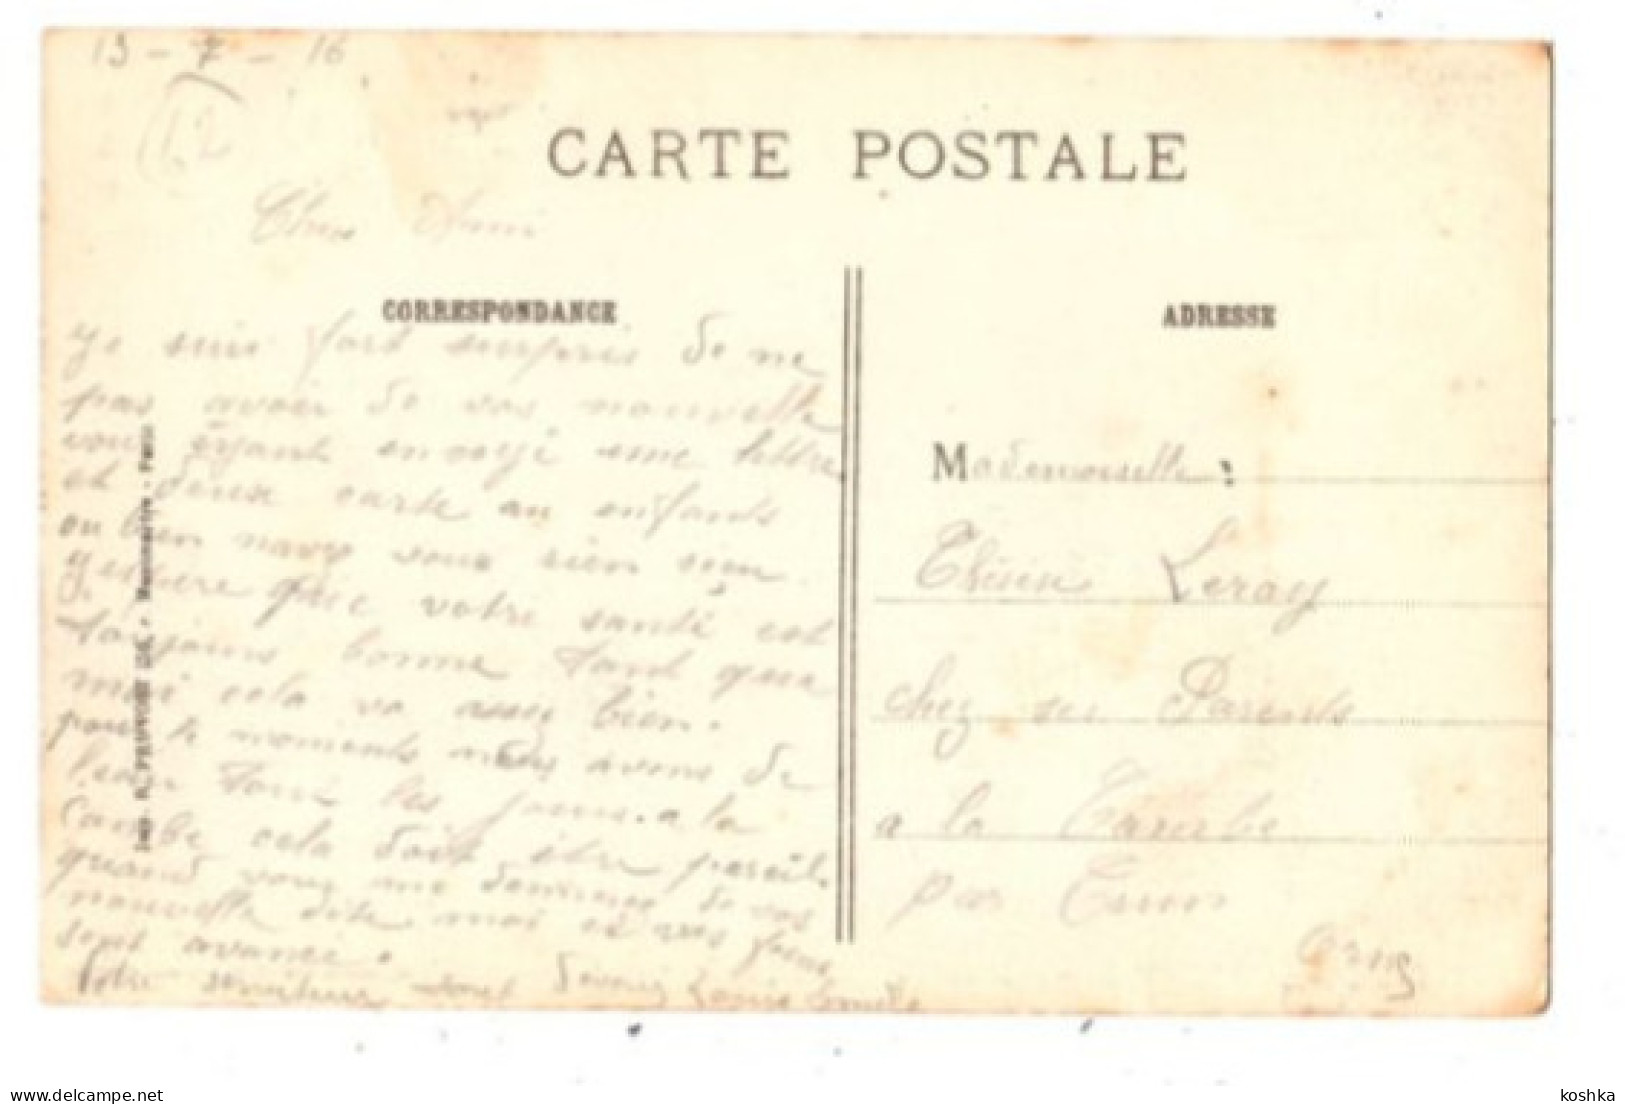 13 - 7 - 16
CARTE POSTALE
Cher Ami
CORRESPONDANCE
ADRESSE
Je suis fort surpris de ne
pas avoir de vos nouvelle
vous éyant envoyé une lettre
et deux carte au enfants
ou bien navez vous rien reçu.
J'espère que votre santé est
toujours bonne tant qua
moi cela va assez bien.
pour le moments nous avons de
l'eau tous les jours. a la
Cambe cela doit être pareil.
quand vous me donnerez de vos
nouvelle dite moi si vos foins
sont avancé.
Votre serviteur tout dévoué Louis
Mademoiselle :
Leray
chez ses Parents
a la Cambe
par Trun
Orne
Imp. Montmartre - Paris
koshka